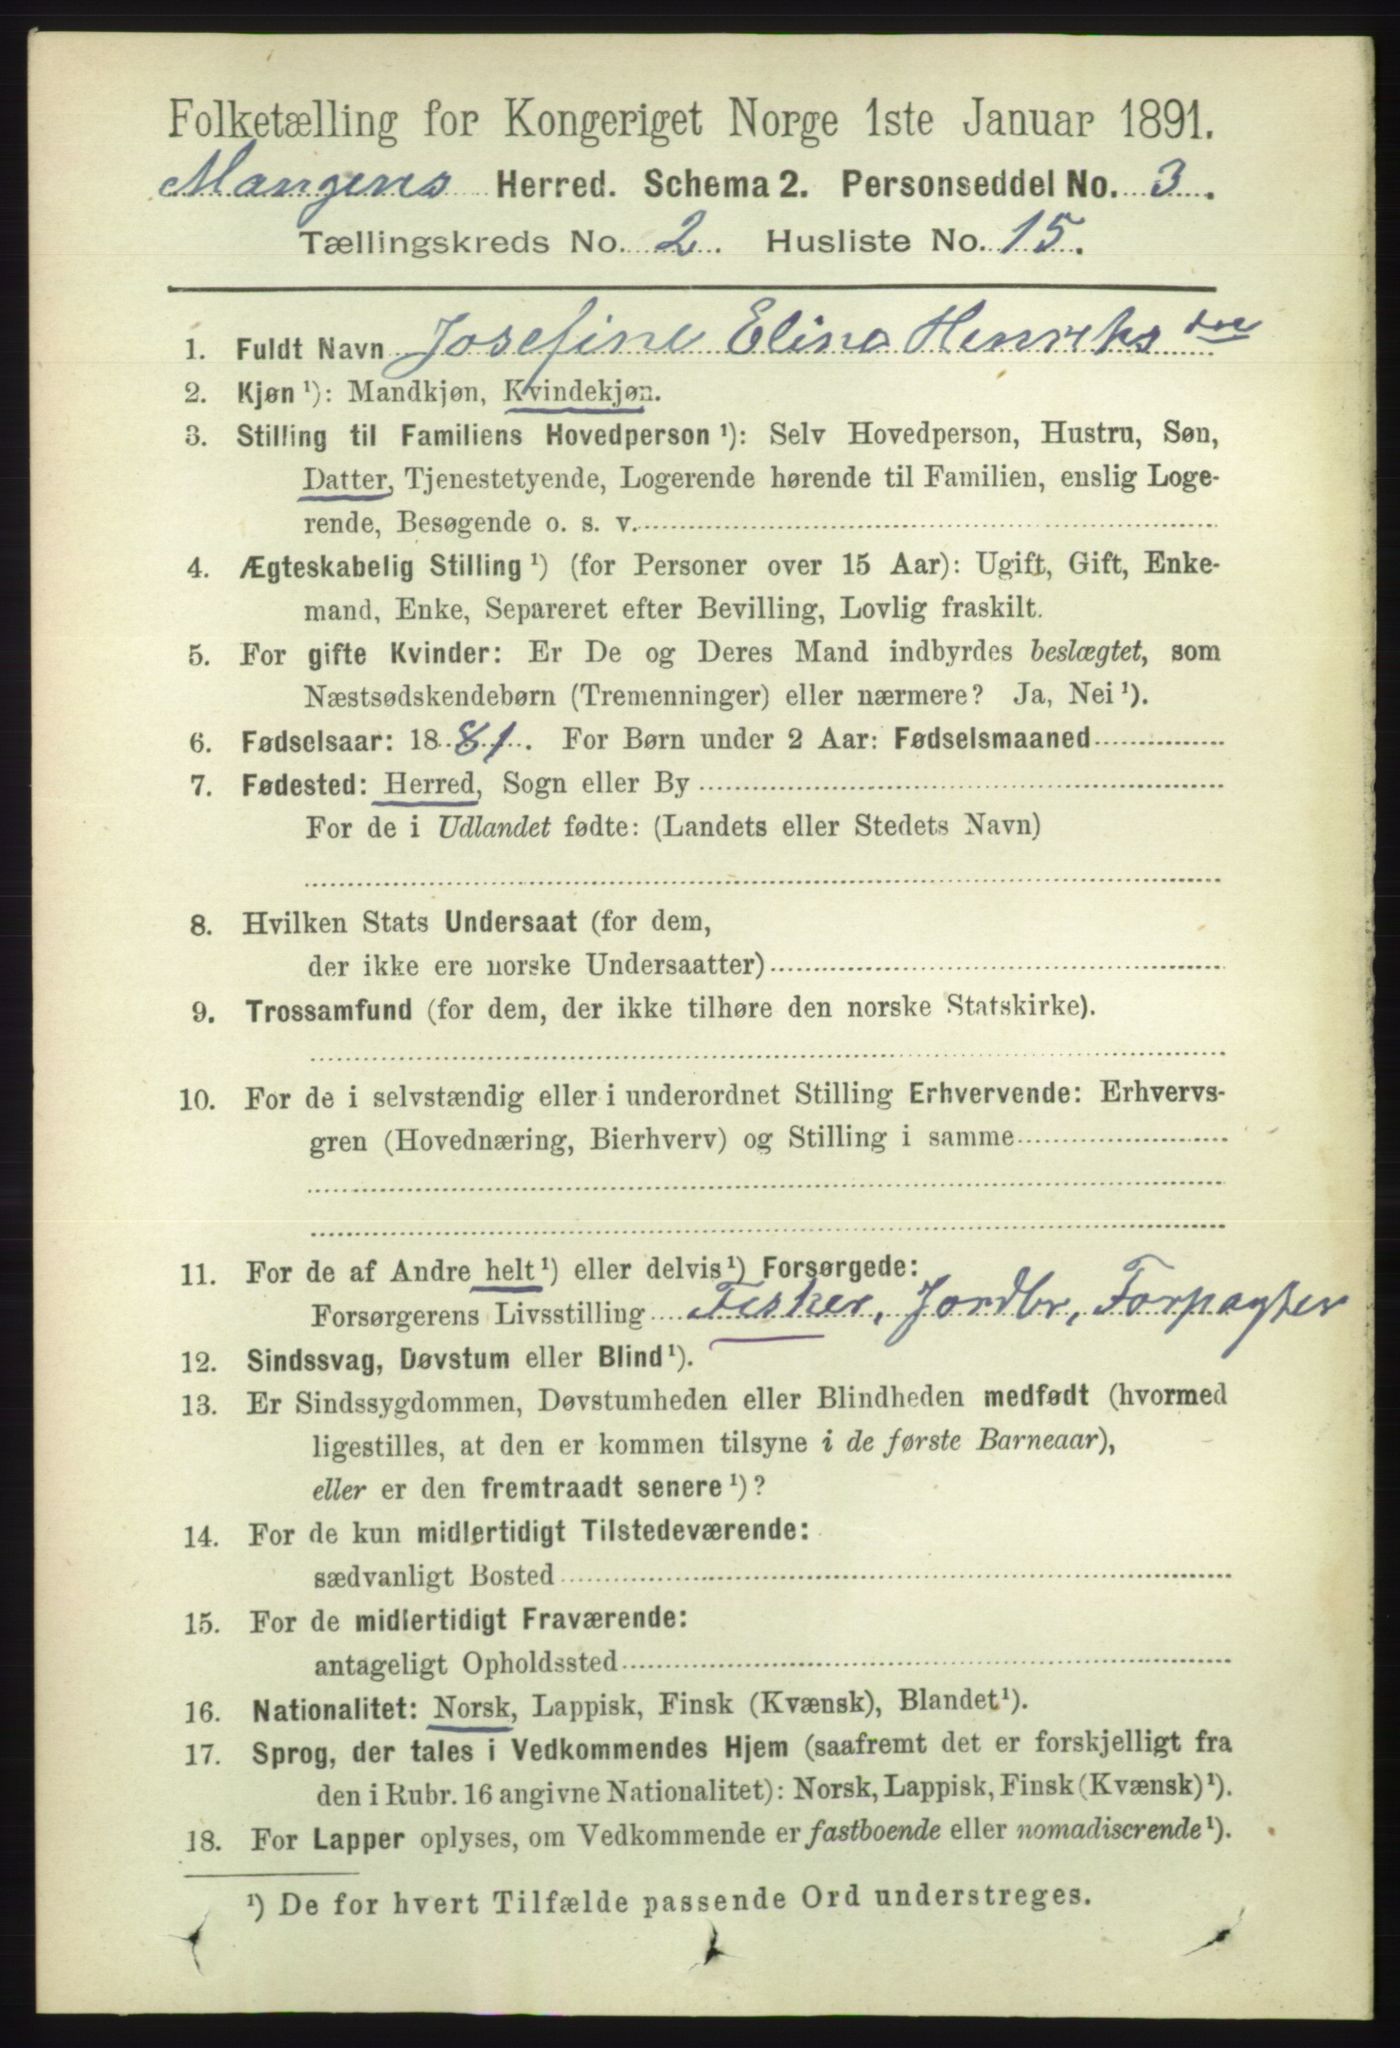 Folketælling for Kongeriget Norge 1ste Januar 1891.
Mangens Herred. Schema 2. Personseddel No. 3.
Tællingskreds No. 2. Husliste No. 15.
1. Fuldt Navn Josefine Elina Henriksdtr
2. Kjøn ¹): Mandkjøn, Kvindekjøn.
3. Stilling til Familiens Hovedperson ¹): Selv Hovedperson, Hustru, Søn,
Datter, Tjenestetyende, Logerende hørende til Familien, enslig Loge-
rende, Besøgende o. s. v.
4. Ægteskabelig Stilling ¹) (for Personer over 15 Aar): Ugift, Gift, Enke-
mand, Enke, Separeret efter Bevilling, Lovlig fraskilt.
5. For gifte Kvinder: Er De og Deres Mand indbyrdes beslægtet, som
Næstsødskendebørn (Tremenninger) eller nærmere? Ja, Nei ¹).
6. Fødselsaar: 1881. For Børn under 2 Aar: Fødselsmaaned
7. Fødested: Herred, Sogn eller By
For de i Udlandet fødte: (Landets eller Stedets Navn)
8. Hvilken Stats Undersaat (for dem,
der ikke ere norske Undersaatter)
9. Trossamfund (for dem, der ikke tilhøre den norske Statskirke).
10. For de i selvstændig eller i underordnet Stilling Erhvervende: Erhvervs-
gren (Hovednæring, Bierhverv) og Stilling i samme
11. For de af Andre helt ¹) eller delvis ¹) Forsørgede:
Forsørgerens Livsstilling Fisker, Jordbr, Forpagter
12. Sindssvag, Døvstum eller Blind ¹).
13. Er Sindssygdommen, Døvstumheden eller Blindheden medfødt (hvormed
ligestilles, at den er kommen tilsyne i de første Barneaar),
eller er den fremtraadt senere ¹)?
14. For de kun midlertidigt Tilstedeværende:
sædvanligt Bosted
15. For de midlertidigt Fraværende:
antageligt Opholdssted
16. Nationalitet: Norsk, Lappisk, Finsk (Kvænsk), Blandet ¹).
17. Sprog, der tales i Vedkommendes Hjem (saafremt det er forskjelligt fra
den i Rubr. 16 angivne Nationalitet): Norsk, Lappisk, Finsk (Kvænsk) ¹).
18. For Lapper oplyses, om Vedkommende er fastboende eller nomadiserende ¹).
¹) De for hvert Tilfælde passende Ord understreges.